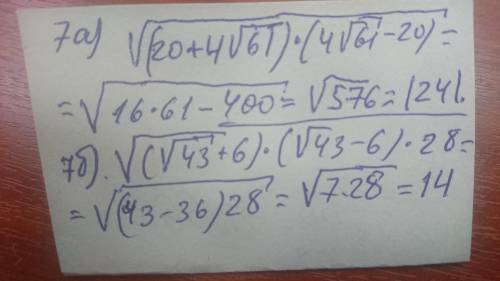 7а) √((20+4√61)·(4√61-20)) =
= √(16·61-400) = √576 = |24|.
7б). √((√43+6)·(√43-6)·28) =
= √((43-36)28) = √(7·28) = 14